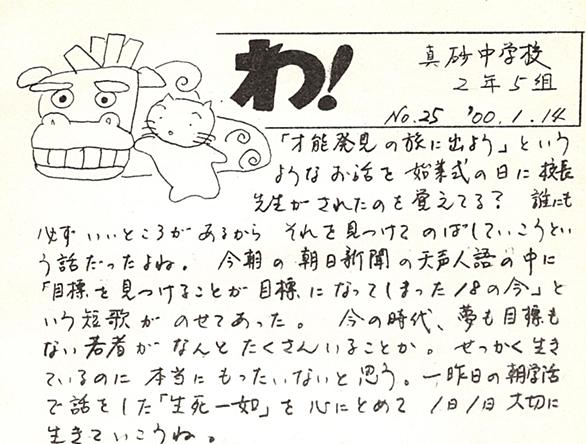 わ!
真砂中学校
2年5組
No.25 '00.1.14
「才能発見の旅に出よう」という
ようなお話を始業式の日に校長
先生がされたのを覚えてる? 誰にも
必ずいいところがあるからそれを見つけてのばしていこうとい
う話だったよね。 今朝の朝日新聞の天声人語の中に
「目標を見つけることが目標になってしまった18の今」と
いう短歌がのせてあった。 今の時代、夢も目標も
ない若者がなんとたくさんいることか。せっかく生き
ているのに本当にもったいないと思う。一昨日の朝学活
で話をした「生死一如」を心にとめて1日1日大切に
生きていこうね。